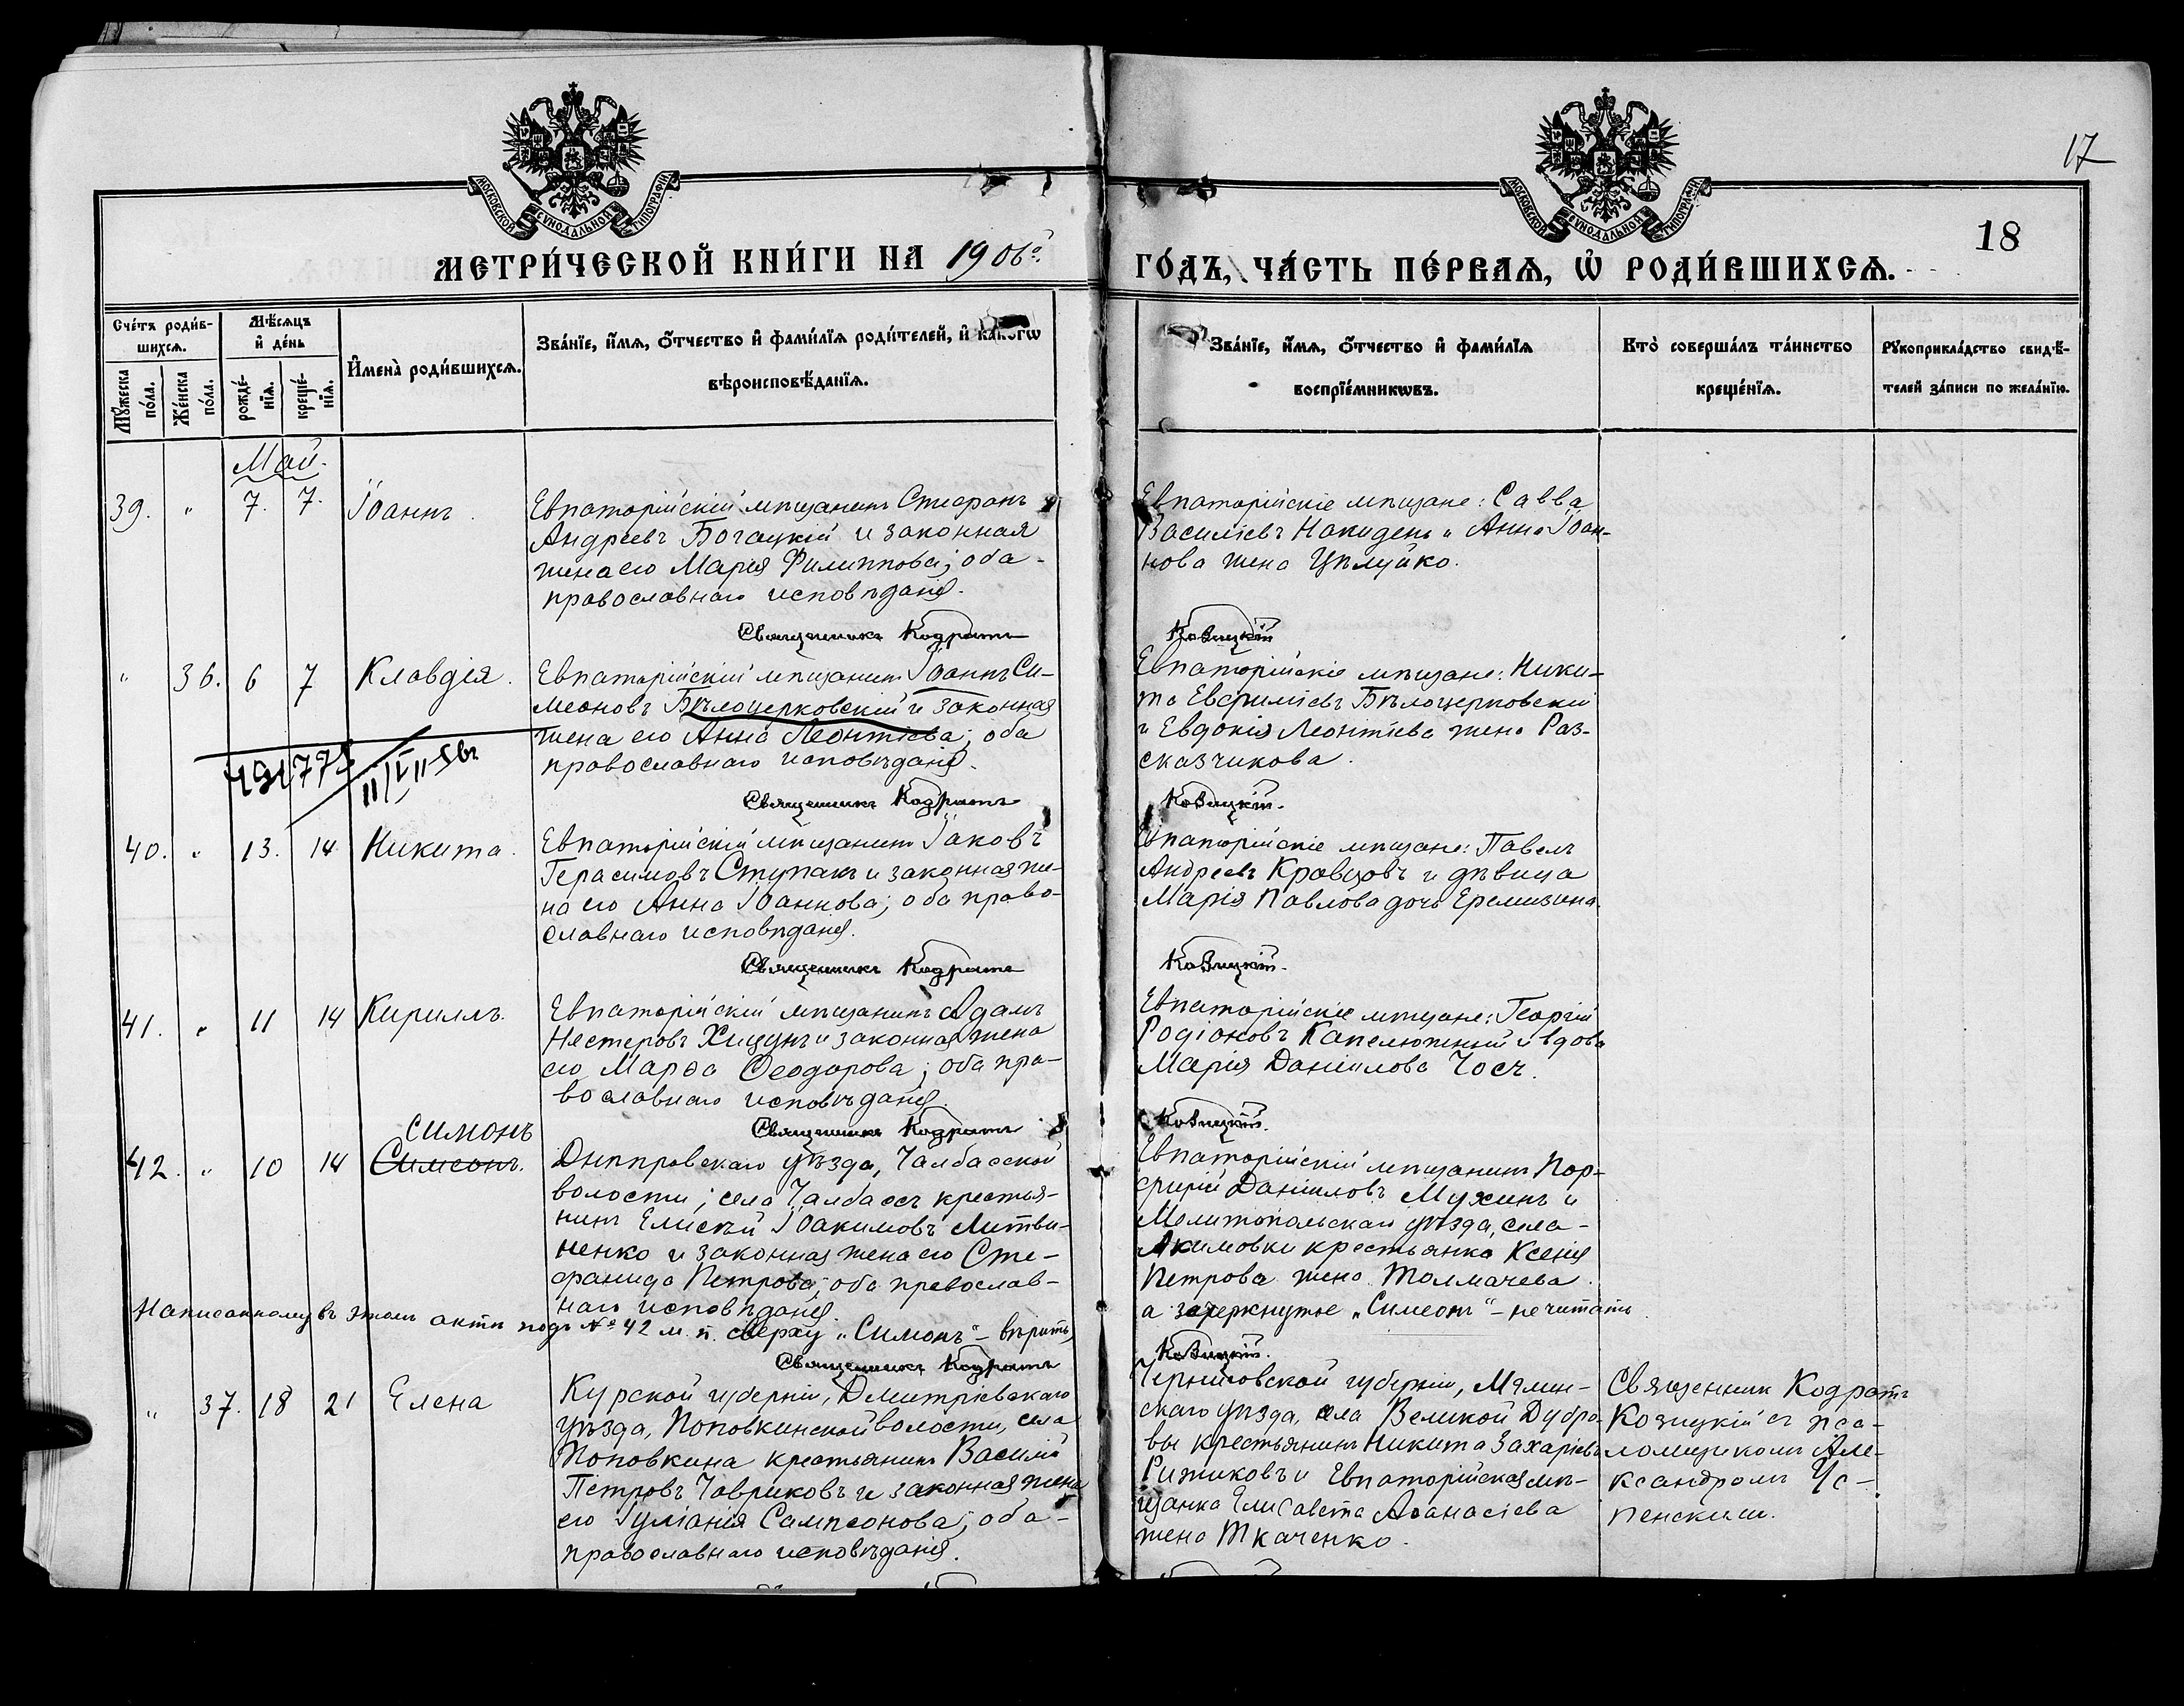 17
18
МОСКОВСКОЙ СѴНОДАЛЬНОЙ ТИПОГРАФІИ
МОСКОВСКОЙ СѴНОДАЛЬНОЙ ТИПОГРАФІИ
МЕТРИ́ЧЕСКОЙ КНИ́ГИ НА 1906й.
ГО́ДЪ, ЧА́СТЬ ПЕ́РВАѦ, Ѡ҆ РОДИ́ВШИХСѦ.
Сче́тъ роди́в-
шихсѧ.
Мꙋ́жеска по́ла.
Же́нска по́ла.
Мѣ́сѧцъ
и҆ де́нь
рожде́-
нїѧ.
креще́-
нїѧ.
И҆мена̀ роди́вшихсѧ.
Зва́нїе, и҆́мѧ, ѻ҆́тчество и҆ фами́лїѧ роди́телей, и҆ како́гѡ
вѣроисповѣ́данїѧ.
Зва́нїе, и҆́мѧ, ѻ҆́тчество и҆ фами́лїѧ
воспрїе́мникѡвъ.
Кто̀ соверша́лъ та́инство
креще́нїѧ.
Рꙋкоприкла́дство свидѣ́-
телей за́писи по жела́нїю.
Май.
39. " 7. 7. Іоаннъ.
Евпаторійскій мѣщанинъ Стефанъ
Андреевъ Богацкій и законная
жена его Марія Филиппова; оба
православнаго исповѣданія.
Евпаторійскіе мѣщане: Савва
Василіевъ Накидень и Анна Іоан-
нова жена Цѣлуйко.
Священникъ Кодратъ Козицкій
" 36. 6 7 Клавдія.
Евпаторійскій мѣщанинъ Іоаннъ Си-
меоновъ Бѣлоцерковскій и законная
жена его Анна Леонтіева; оба
православнаго исповѣданія.
Евпаторійскіе мѣщане: Ники-
та Евфиміевъ Бѣлоцерковскій
и Евдокія Леонтіева жена Раз-
сказчикова.
Священникъ Кодратъ Козицкій.
40. " 13. 14 Никита.
Евпаторійскій мѣщанинъ Іаковъ
Герасимовъ Ступакъ и законная же-
на его Анна Іоаннова; оба право-
славнаго исповѣданія.
Евпаторійскіе мѣщане: Павелъ
Андреевъ Кравцовъ и дѣвица
Марія Павлова дочь Еремизина.
Священникъ Кодратъ Козицкій.
41. " 11 14 Кириллъ.
Евпаторійскій мѣщанинъ Адамъ
Нестеровъ Хицунъ и законная жена
его Марѳа Ѳеодорова; оба пра-
вославнаго исповѣданія.
Евпаторійскіе мѣщане: Георгій
Родіоновъ Капелюжный и вдова
Марія Даніилова Чосъ.
Священникъ Кодратъ Козицкій.
Симонъ
42. " 10 14 Симеонъ.
Днѣпровскаго уѣзда, Чалбасской
волости; села Чалбасъ крестья-
нинъ Елисѣй Іоакимовъ Литви-
ненко и законная жена его Сте-
фанида Петрова; оба православ-
наго исповѣданія.
Евпаторійскій мѣщанинъ Пор-
фирій Даніиловъ Мухинъ и
Мелитопольскаго уѣзда, села
Акимовки крестьянка Ксенія
Петрова жена Толмачева.
Написанному въ этомъ актѣ подъ № 42 м. п. сверху „Симонъ“ – вѣрить,
а зачеркнутое „Симеонъ“ – не читать.
Священникъ Кодратъ Козицкій.
" 37. 18 21 Елена
Курской губерніи, Дмитріевскаго
уѣзда, Поповкинской волости, села
Поповкина крестьянинъ Василій
Петровъ Чавриковъ и законная жена
его Іуліанія Сампсонова; оба
православнаго исповѣданія.
Черниговской губерніи, Мглин-
скаго уѣзда, села Великой Дубро-
вы крестьянинъ Никита Захаріевъ
Рижиковъ и Евпаторійская мѣ-
щанка Елисавета Аѳанасіева
жена Ткаченко.
Священник Кодратъ
Козицкій съ пса-
ломщикомъ Але-
ксандромъ Ус-
пенскимъ.